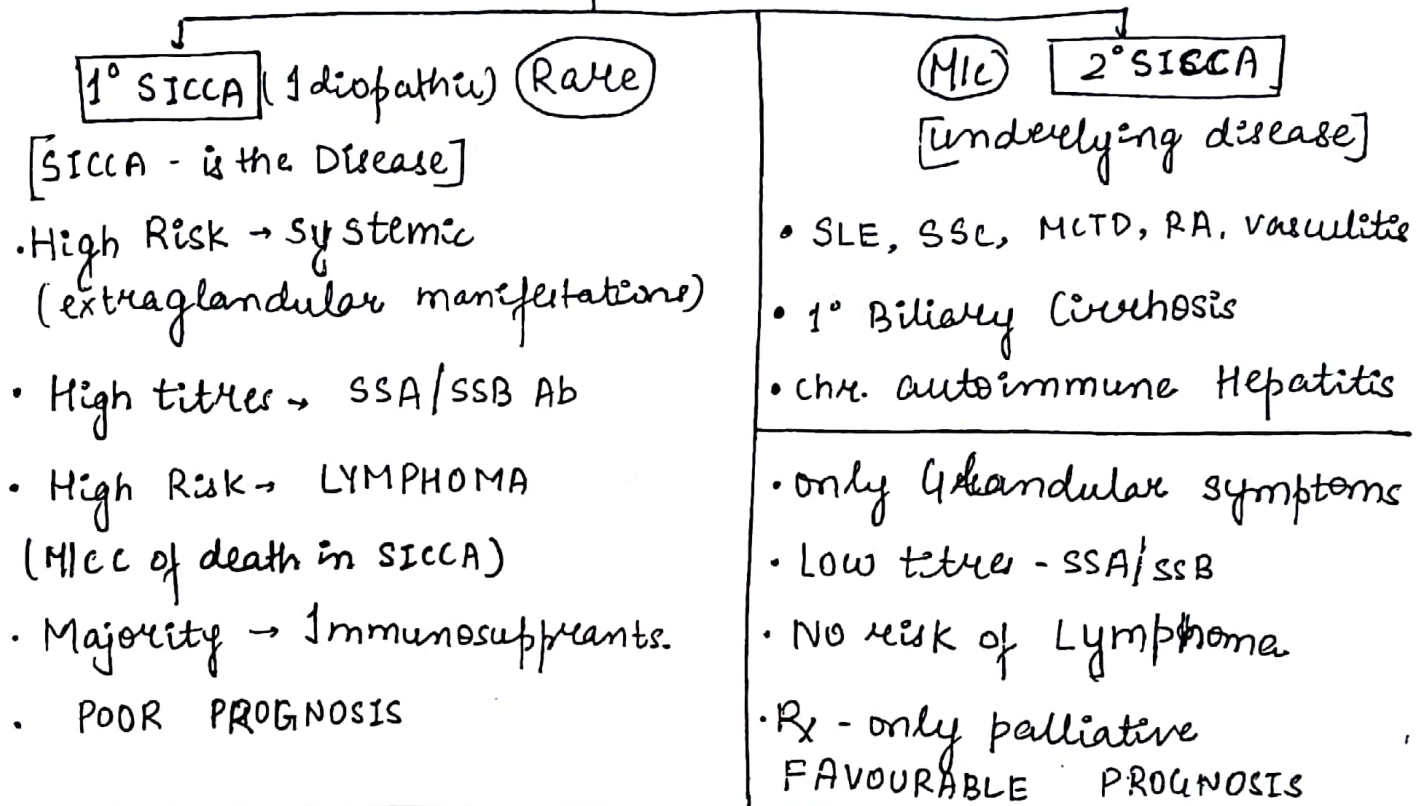 1° SICCA (Idiopathic) Rare
[SICCA - is the Disease]
• High Risk → systemic
(extraglandular manifestations)
• High titres → SSA/SSB Ab
• High Risk → LYMPHOMA
(M/C C of death in SICCA)
• Majority → Immunosupprants.
• POOR PROGNOSIS
M/C 2° SICCA
[underlying disease]
• SLE, SSC, MCTD, RA, vasculitis
• 1° Biliary Cirrhosis
• chr. autoimmune Hepatitis
• only Glandular symptoms
• Low titres - SSA/SSB
• No risk of Lymphoma
• Rx - only palliative
FAVOURABLE PROGNOSIS